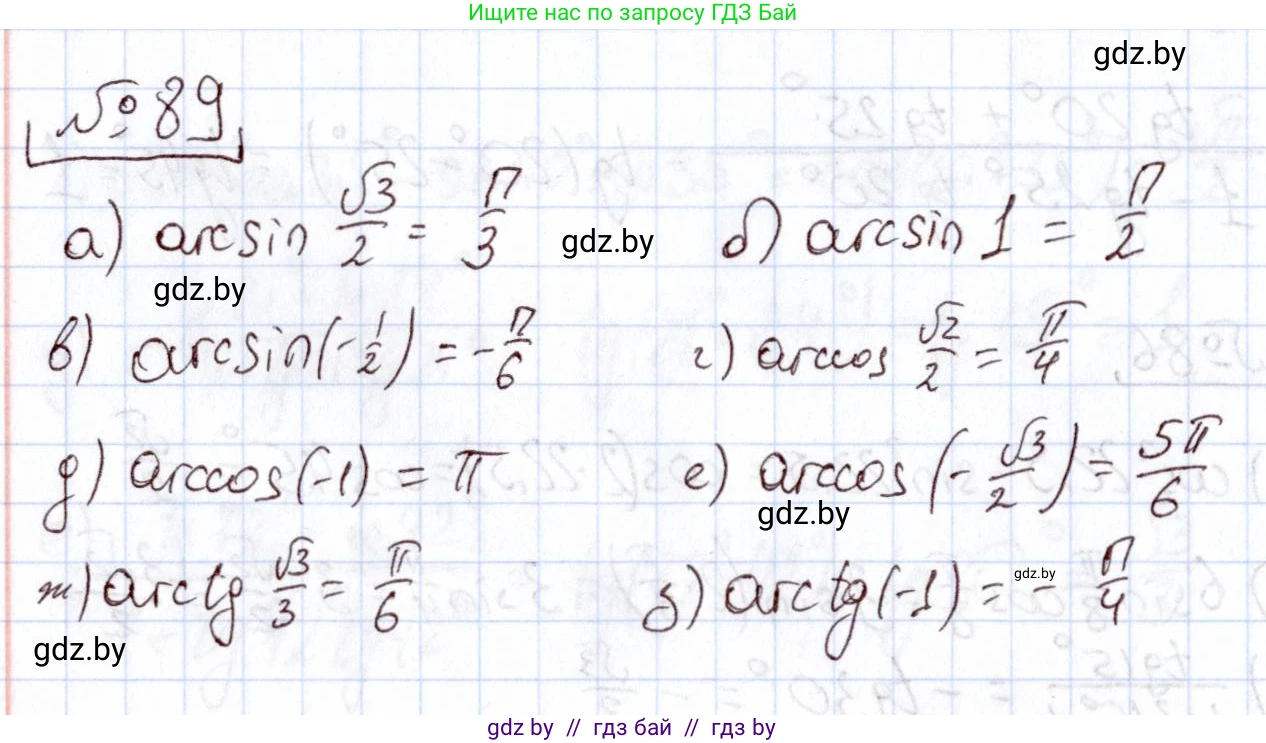 Ищите нас по запросу ГДЗ Бай
gdz.by
№ 89
а) arcsin √3/2 = π/3 gdz.by б) arcsin 1 = π/2
gdz.by
в) arcsin(-1/2) = -π/6 г) arccos √2/2 = π/4
д) arccos(-1) = π е) arccos(-√3/2) = 5π/6
gdz.by
ж) arctg √3/3 = π/6 з) arctg(-1) = - π/4
gdz.by
gdz.by
gdz by // гдз бай // гдз by